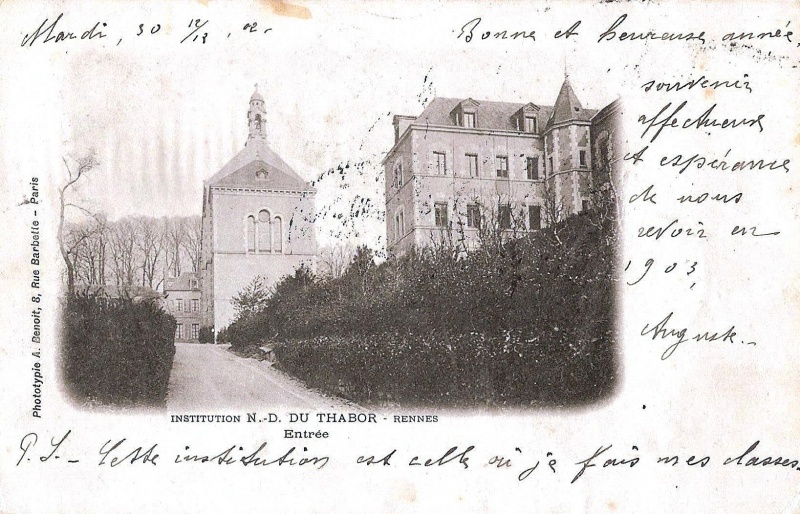 Mardi, 30 12/13, 02.
Bonne et heureuse année,
souvenir
affectueux
et espérance
de nous
revoir en
1903,
Auguste.-
Phototypie A. Benoit, 8, Rue Barbette - Paris
INSTITUTION N.-D. DU THABOR - RENNES
Entrée
P.S.- Cette institution est celle où je fais mes classes.